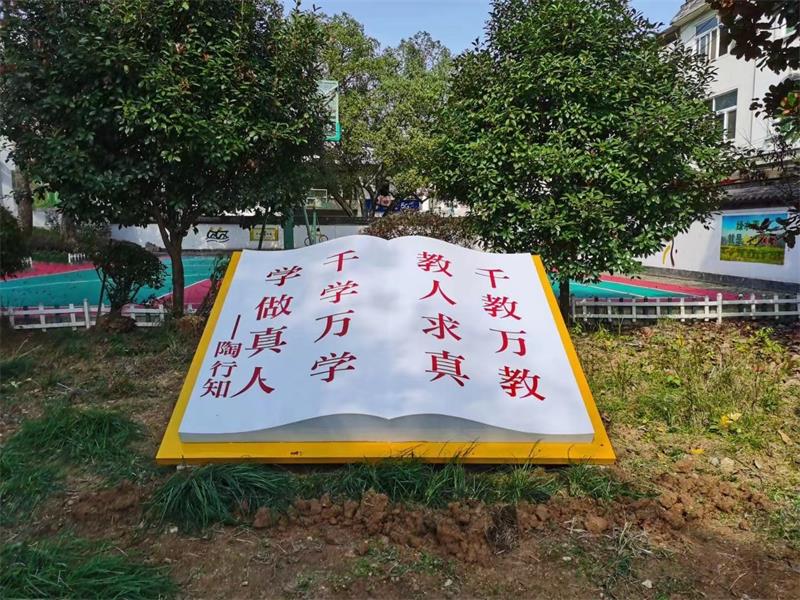 千教万教
教人求真
千学万学
学做真人
—陶行知